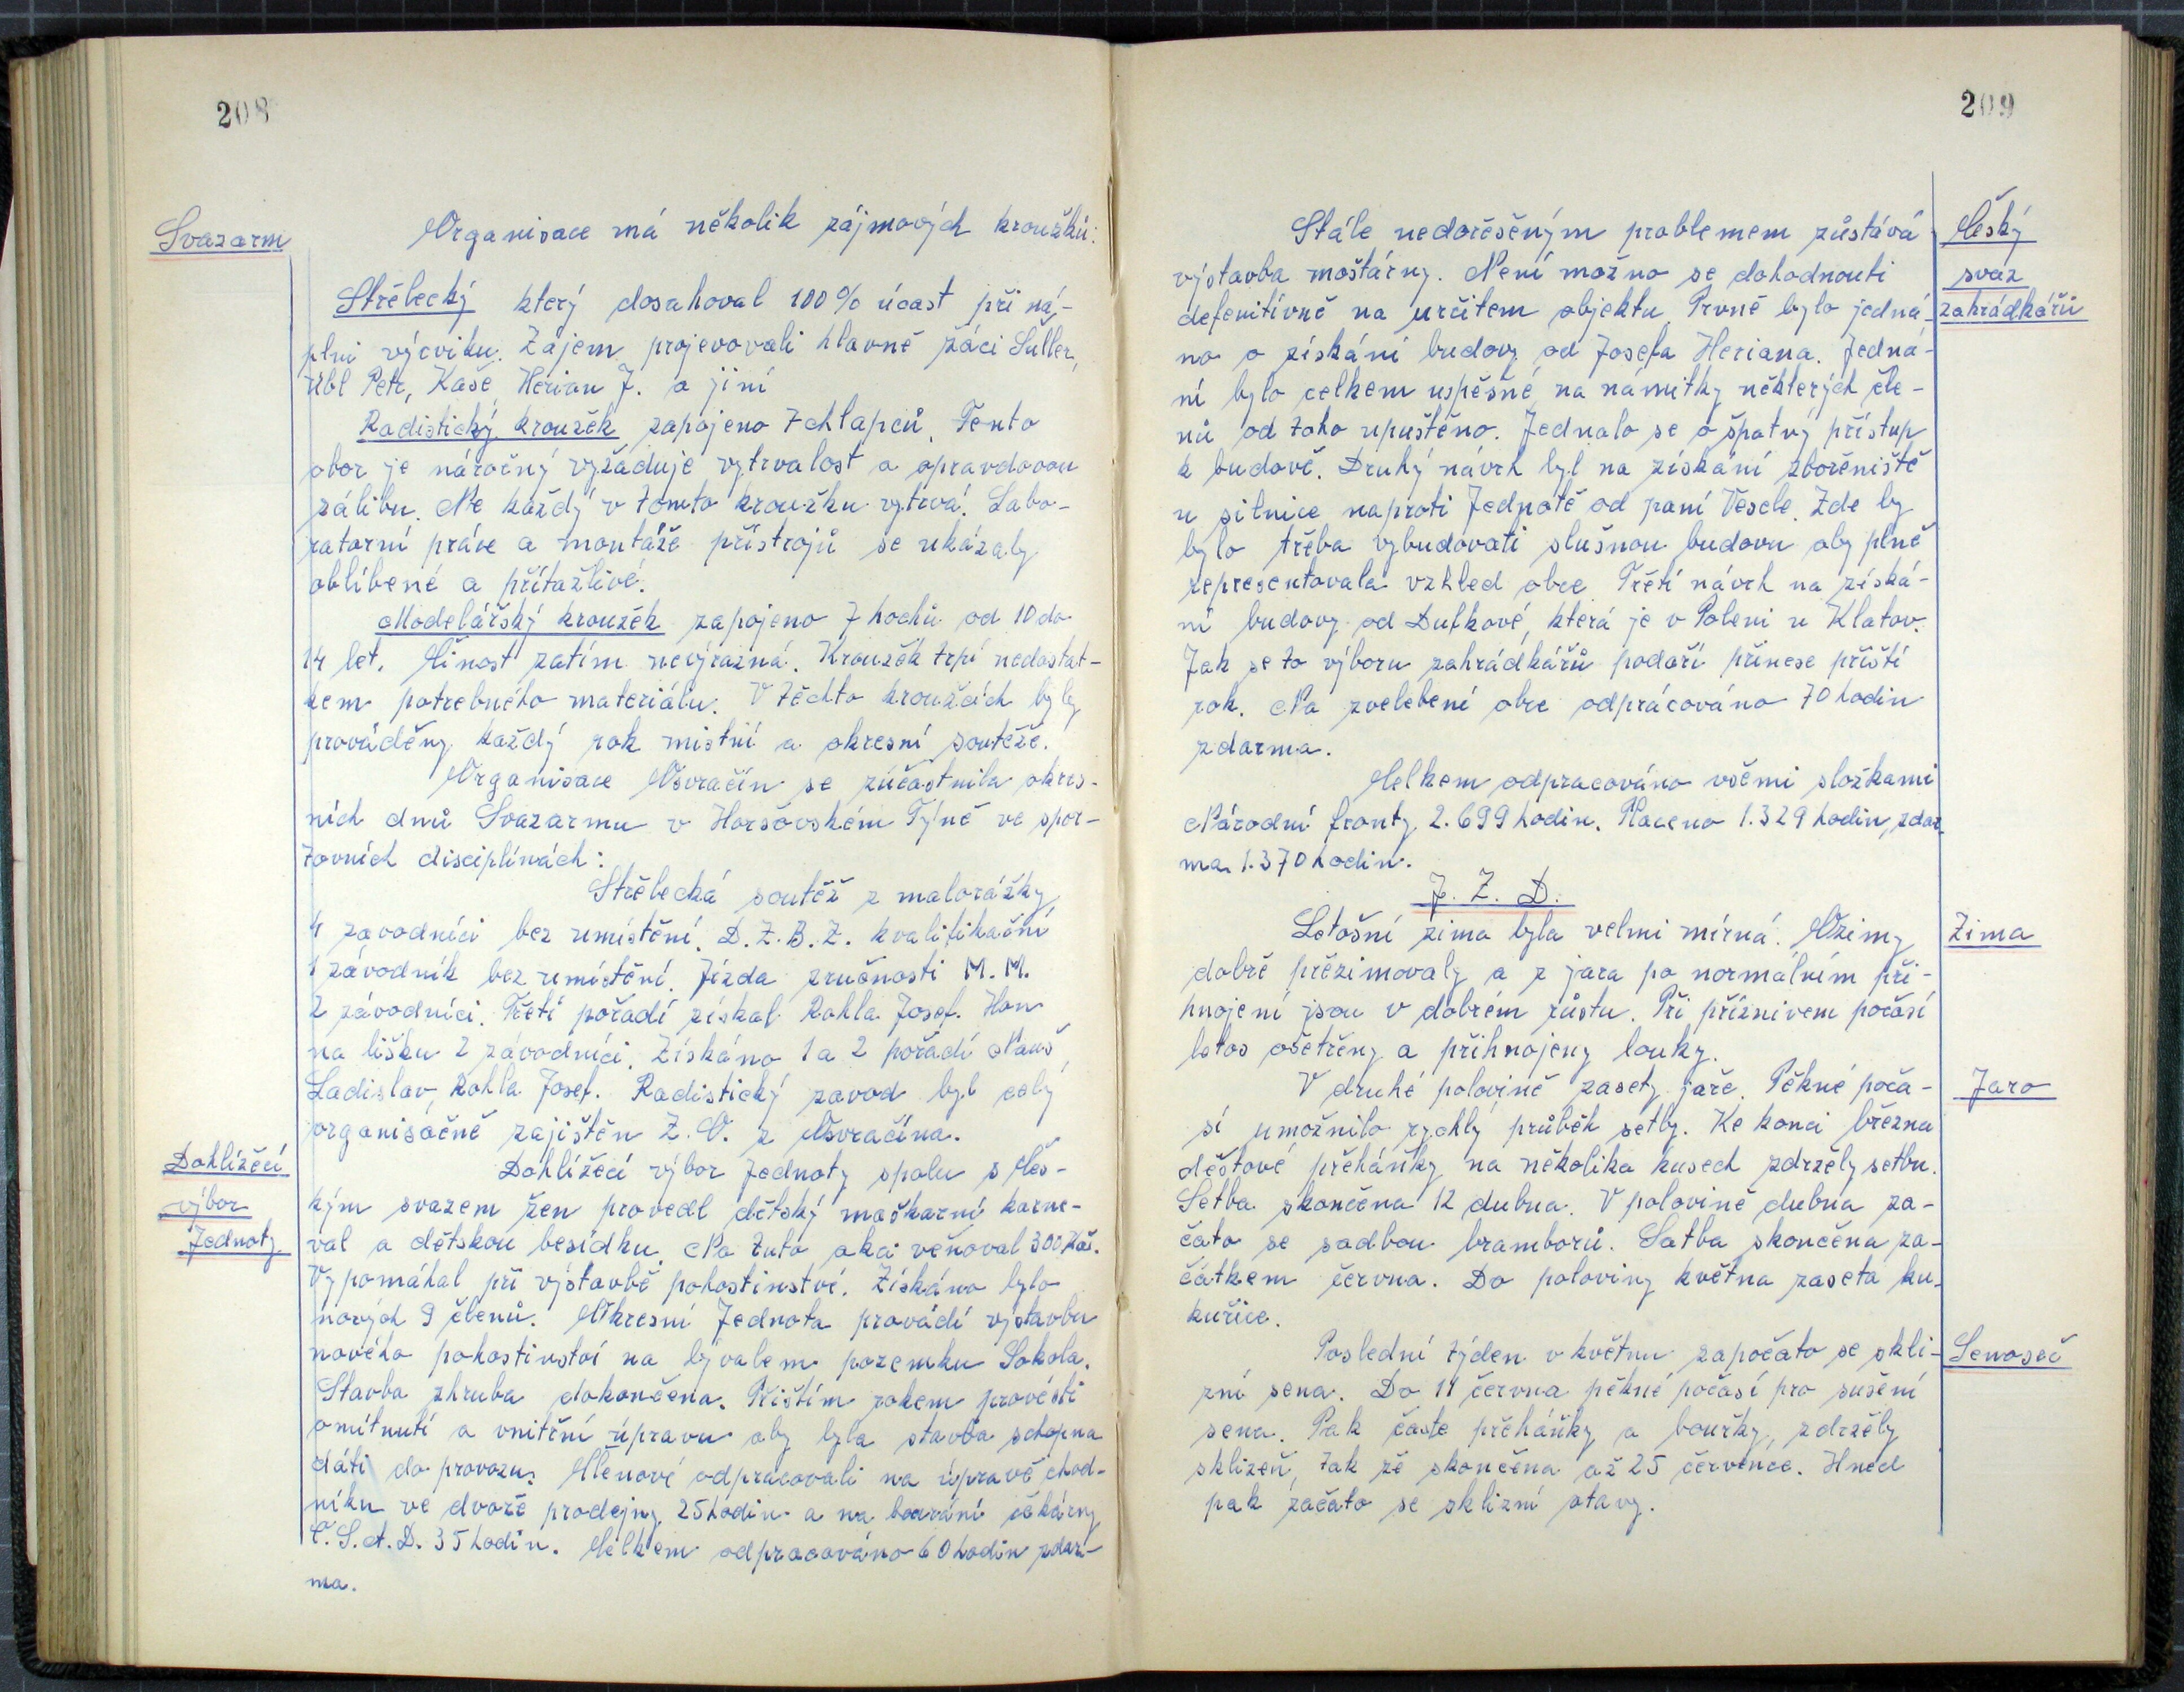 208
Svazarm
Organisace má několik zájmových kroužků:
Střelecký který dosahoval 100% účast při ná-
plni výcviku. Zájem projevovali hlavně žáci Suller,
Úbl Petr, Kaše, Herian J. a jiní
Radistický kroužek zapojeno 7 chlapců. Tento
obor je náročný vyžaduje vytrvalost a opravdovou
zálibu. Ne každý v tomto kroužku vytrvá. Labo-
ratorní práce a montáže přístrojů se ukázaly
oblíbené a přitažlivé.
Modelářský kroužek zapojeno 7 hochů od 10 do
14 let. Činost zatím nevýrazná. Kroužek trpí nedostat-
kem potrebného materiálu. V těchto kroužcích byly
prováděny každý rok mistní a okresní soutěže.
Organisace Osvračín se zúčastnila okres-
ních dnů Svazarmu v Horšovském Týně ve spor-
tovních disciplínách:
Střelecká soutěž z malorážky
4 závodníci bez umístění. D.Z.B.Z. kvalifikační
1 závodník bez umístění. Jízda zručnosti M.M.
2 závodníci. Třetí pořadí získal Rohla Josef. Hon
na lišku 2 závodníci. Získáno 1 a 2 pořadí Nauš
Ladislav, Rohla Josef. Radistický zavod byl celý
organisačně zajištěn Z.O. z Osvračína.
Dohlížecí
výbor
Jednoty
Dohlížecí výbor Jednoty spolu s Čes-
kým svazem žen provedl dětský maškarní karne-
val a dětskou besídku. Na tuto akci věnoval 300 Kčs.
Vypomáhal při výstavbě pohostinství. Získáno bylo
nových 9 členů. Okresní Jednota provádí výstavbu
nového pohostinství na bývalem pozemku Sokola.
Stavba zhruba dokončena. Přištím rokem provésti
omítnutí a vnitřní úpravu aby byla stavba schopna
dáti do provozu. Členové odpracovali na úpravě chod-
níku ve dvoře prodejny 25 hodin a na bourání čekárny
Č.S.A.D. 35 hodin. Celkem odpracováno 60 hodin zdar-
ma.
209
Český
svaz
zahrádkářů
Stále nedořešeným problemem zůstává
výstavba moštárny. Není možno se dohodnouti
defenitívně na určitem objektu. Prvně bylo jedná-
no o získání budovy od Josefa Heriana. Jedná-
ní bylo celkem uspěšné, na námitky některých čle-
nů od toho upuštěno. Jednalo se o špatný přístup
k budově. Druhý návrh byl na získání zbořeniště
u silnice naproti Jednotě od paní Vesele. Zde by
bylo třeba vybudovati slušnou budovu aby plně
representovala vzhled obce. Třetí návrh na získá-
ní budovy od Dufkové, která je v Poleni u Klatov.
Jak se to výboru zahrádkářů podaří přinese příští
rok. Na zvelebení obce odprácováno 70 hodin
zdarma.
Celkem odpracováno všemi složkami
Národní fronty 2.699 hodin. Placeno 1.329 hodin, zdar-
ma 1.370 hodin.
J. Z. D.
Zima
Letošní zima byla velmi mírná. Ozimy
dobře přezimovaly a z jara po normálním při-
hnojení jsou v dobrém růstu. Při příznivem počásí
letos ošetřeny a přihnojeny louky.
Jaro
V druhé polovině zasety jaře. Pěkné poča-
sí umožnilo rychlý průběh setby. Ke konci března
deštové přeháňky na několika kusech zdržely setbu.
Setba skončena 12 dubna. V polovině dubna za-
čato se sadbou bramborů. Satba skončena za-
čátkem června. Do poloviny května zaseta ku-
kuřice.
Senoseč
Poslední týden v květnu započato se skli-
zní sena. Do 11 června pěkné počasí pro sušení
sena. Pak časte přeháňky a bouřky, zdržely
sklizeň, tak že skončena až 25 července. Hned
pak začato se sklizní otavy.